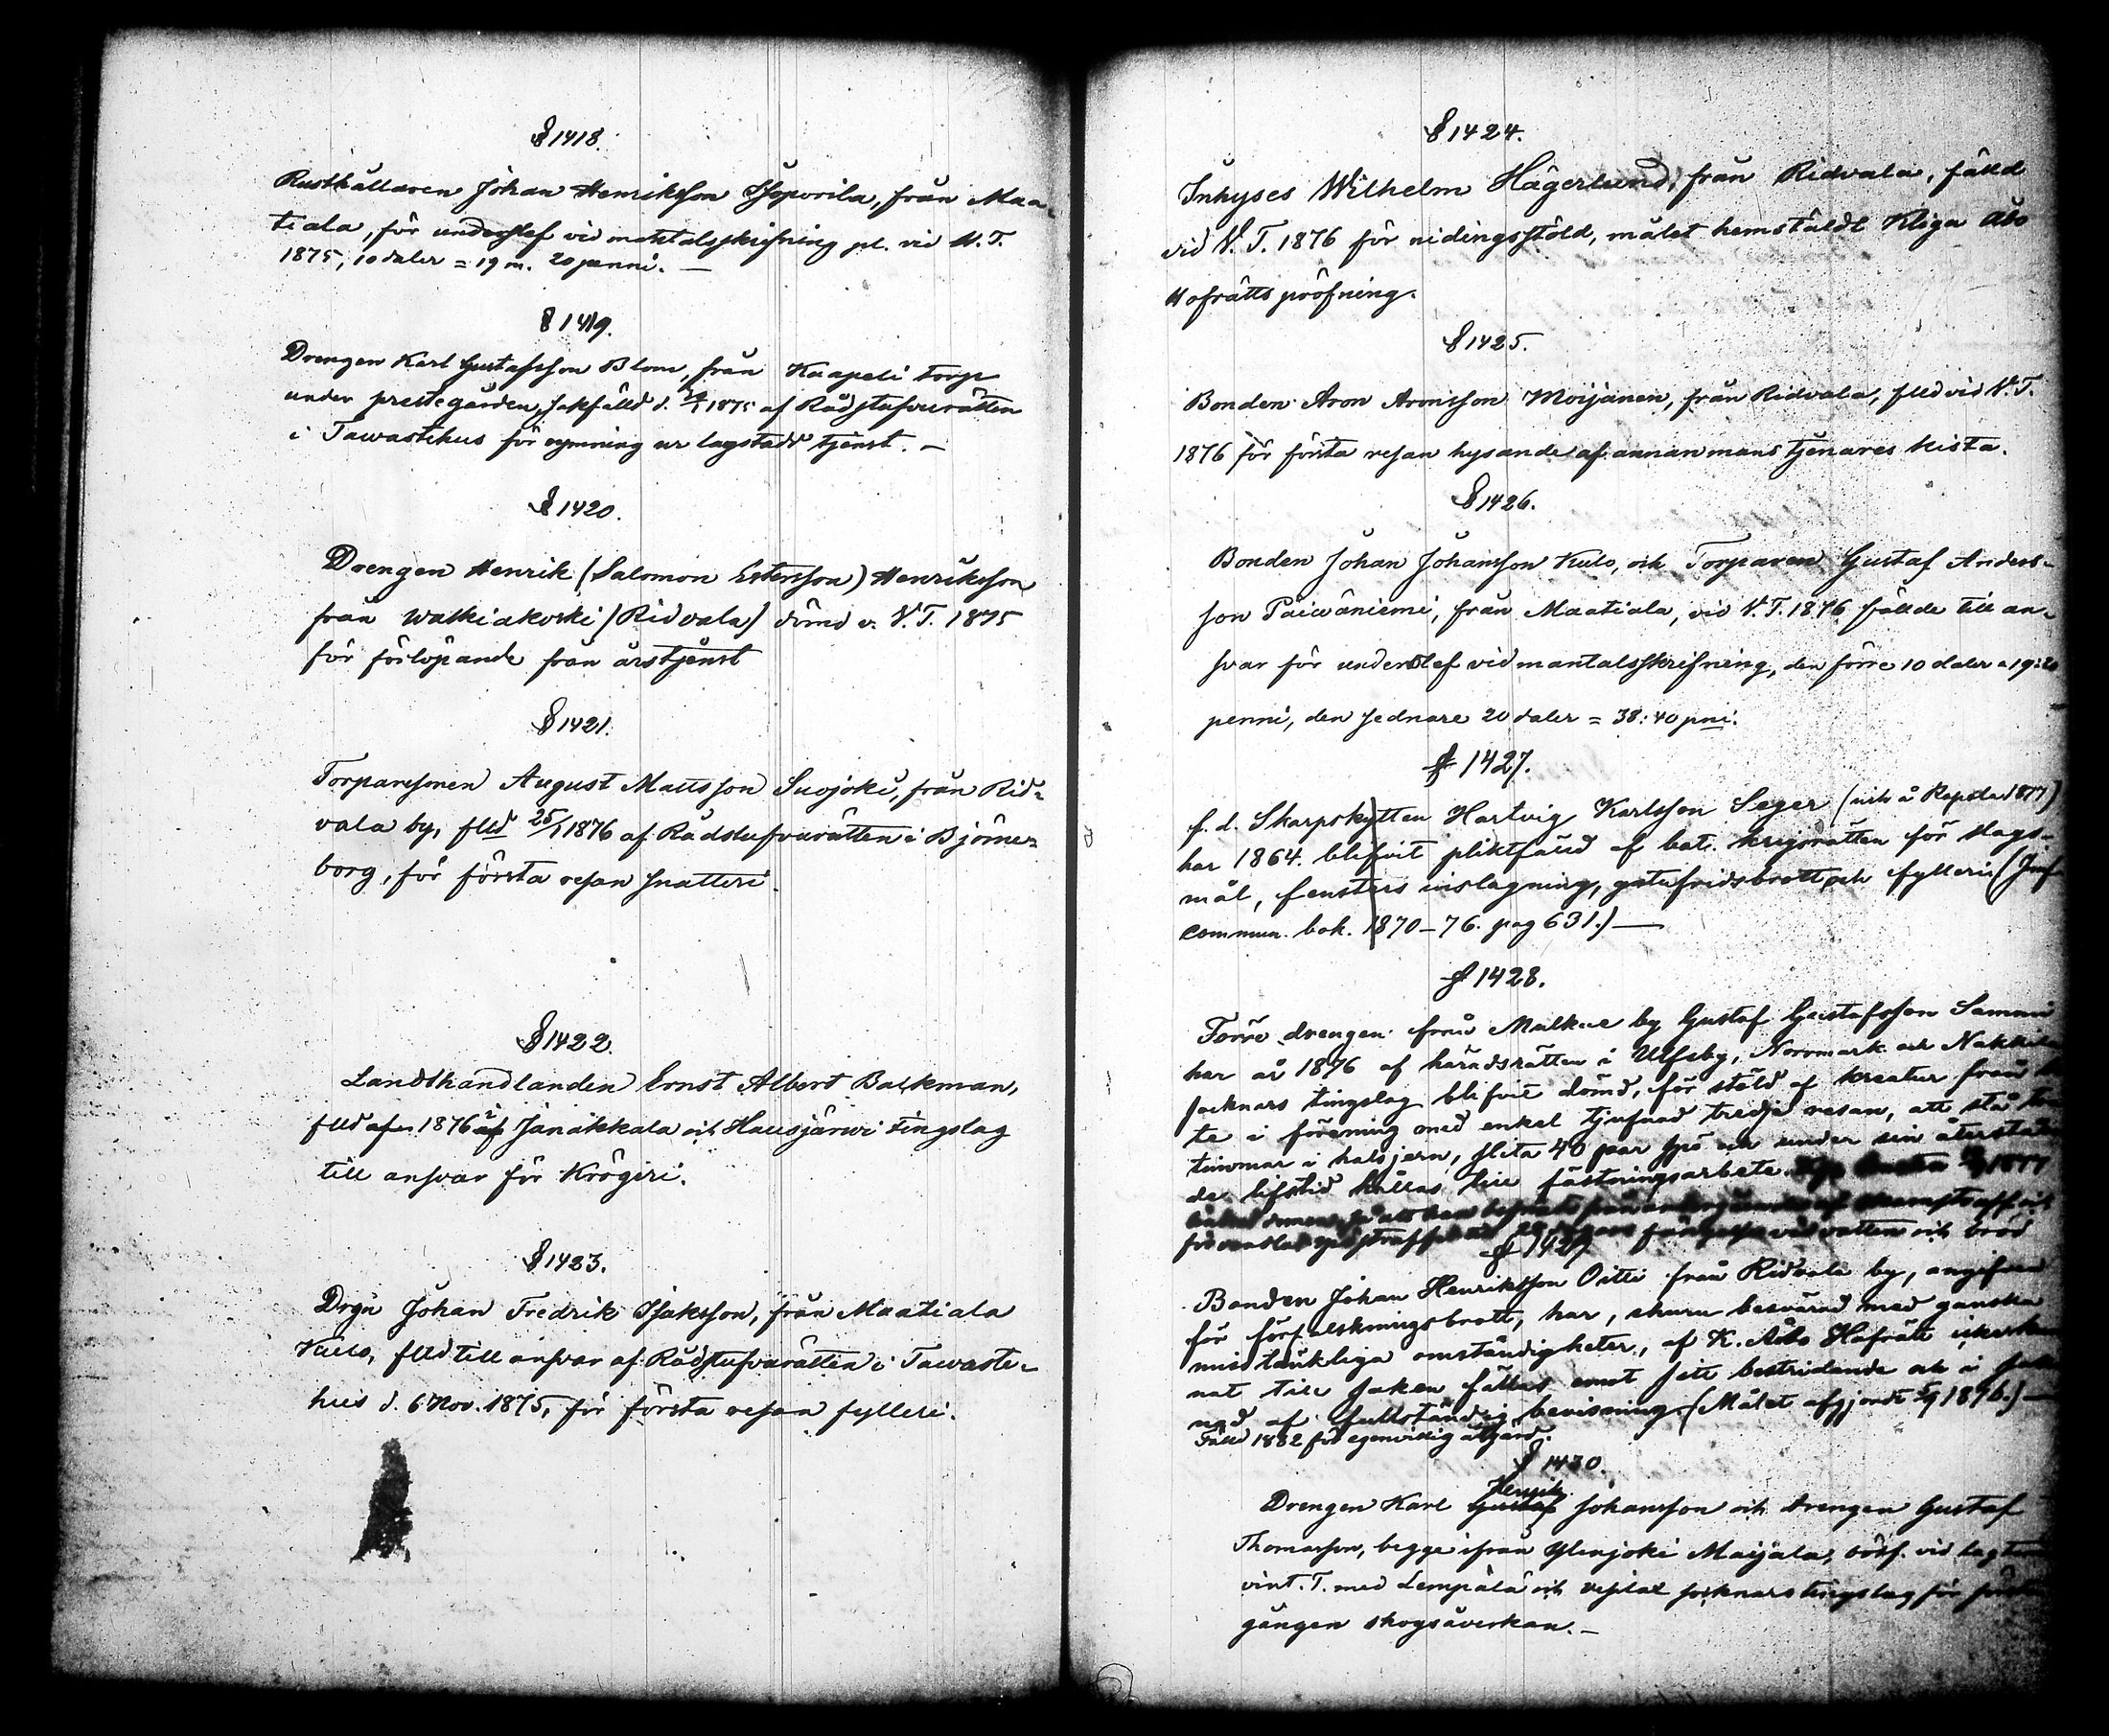 § 1418.
Rusthållaren Johan Henriksson Isoporila, från Maa-
tiala, för underslef vid mantalsskrifning pl. vid V. T.
1875, 10 daler = 19 m. 20 penni. —
§ 1419.
Drengen Karl Gustafsson Blom, från Kaapeli torp
under prestegården, sakfälld d. 1875 af Rådstufvurätten
i Tawastehus för rymning ur lagstadd tjenst. —
§ 1420.
Drengen Henrik (Salomon Estersson) Henriksson
från Walkiakoski (Ridvala) dömd v. V. T. 1875
för förlöpande från årstjenst
§ 1421.
Torparesonen August Mattsson Suojoki, från Rid-
vala by, flld 25/1 1876 af Rådstufvurätten i Björne-
borg, för första resan snatteri.
§ 1422.
Landthandlanden Ernst Albert Backman,
flld 1876 i Janakkala och Hausjärvi tingslag
till ansvar för Krögeri.
§ 1423.
Drgn Johan Fredrik Isaksson, från Maatiala
Kulo, flld till ansvar af Rådstufvurätten i Tawaste-
hus d. 6 Nov. 1875, för första resan fylleri.
§ 1424.
Inhyses Wilhelm Hägerlund, från Ridvala, fälld
vid V. T. 1876 för nidingsstöld, målet hemstäldt Kliga Åbo
Hofrätts pröfning.
§ 1425.
Bonden Aron Aronsson Moijanen, från Ridvala, flld vid V. T.
1876 för första resan hysande af annan mans tjenares kista.
§ 1426.
Bonden Johan Johansson Kulo, och Torparen Gustaf Anders-
son Päiwäniemi, från Maatiala, vid V. T. 1876 fällde till an-
svar för underslef vid mantalsskrifning, den förre 10 daler = 19: 20
penni, den sednare 20 daler = 38: 40 pni.
§ 1427.
f. d. Skarpskytten Hartvig Karlsson Seger
har 1864 blifvit pliktfälld af bat. krigsrätten för slags-
mål, fensters inslagning, gatufridsbrott och fylleri (Jmf.
commun. bok. 1870-76. pag 631.) —
§ 1428.
Förre drengen från Mälkilä by Gustaf Gustafsson Sammu
har år 1876 af häradsrätten i Ulfsby, Norrmark och Nakkila
socknars tingslag blifvit dömd, för stöld af kreatur från
te i förening med enkel tjufnad tredje resan, att stå två
timmar i halsjern, slita 40 par spö och under sin återståen-
de lifstid hållas till fästningsarbete. 1877
fängelse vid vatten och bröd
§ 1429
Bonden Johan Henriksson Oitti från Ridvala by, angifven
för förfalskningsbrott, har, ehuru besvärad med ganska
misstänkliga omständigheter, af K. Åbo Hofrätt icke kun-
nat till saken fällas emot sitt bestridande och i sak-
nad af fullständig bevisning. (Målet afgjordt 1876.) —
Fälld 1882 för egenvillig åtgärd.
§ 1430.
Henrik
Drengen Karl Gustaf Johansson och drengen Gustaf
Thomasson, begge ifrån Ylenjoki Maijala, bötf. vid lagtima
vint. T. med Lempälä och Vesilax socknars tingslag för första
gången skogsåverkan. —